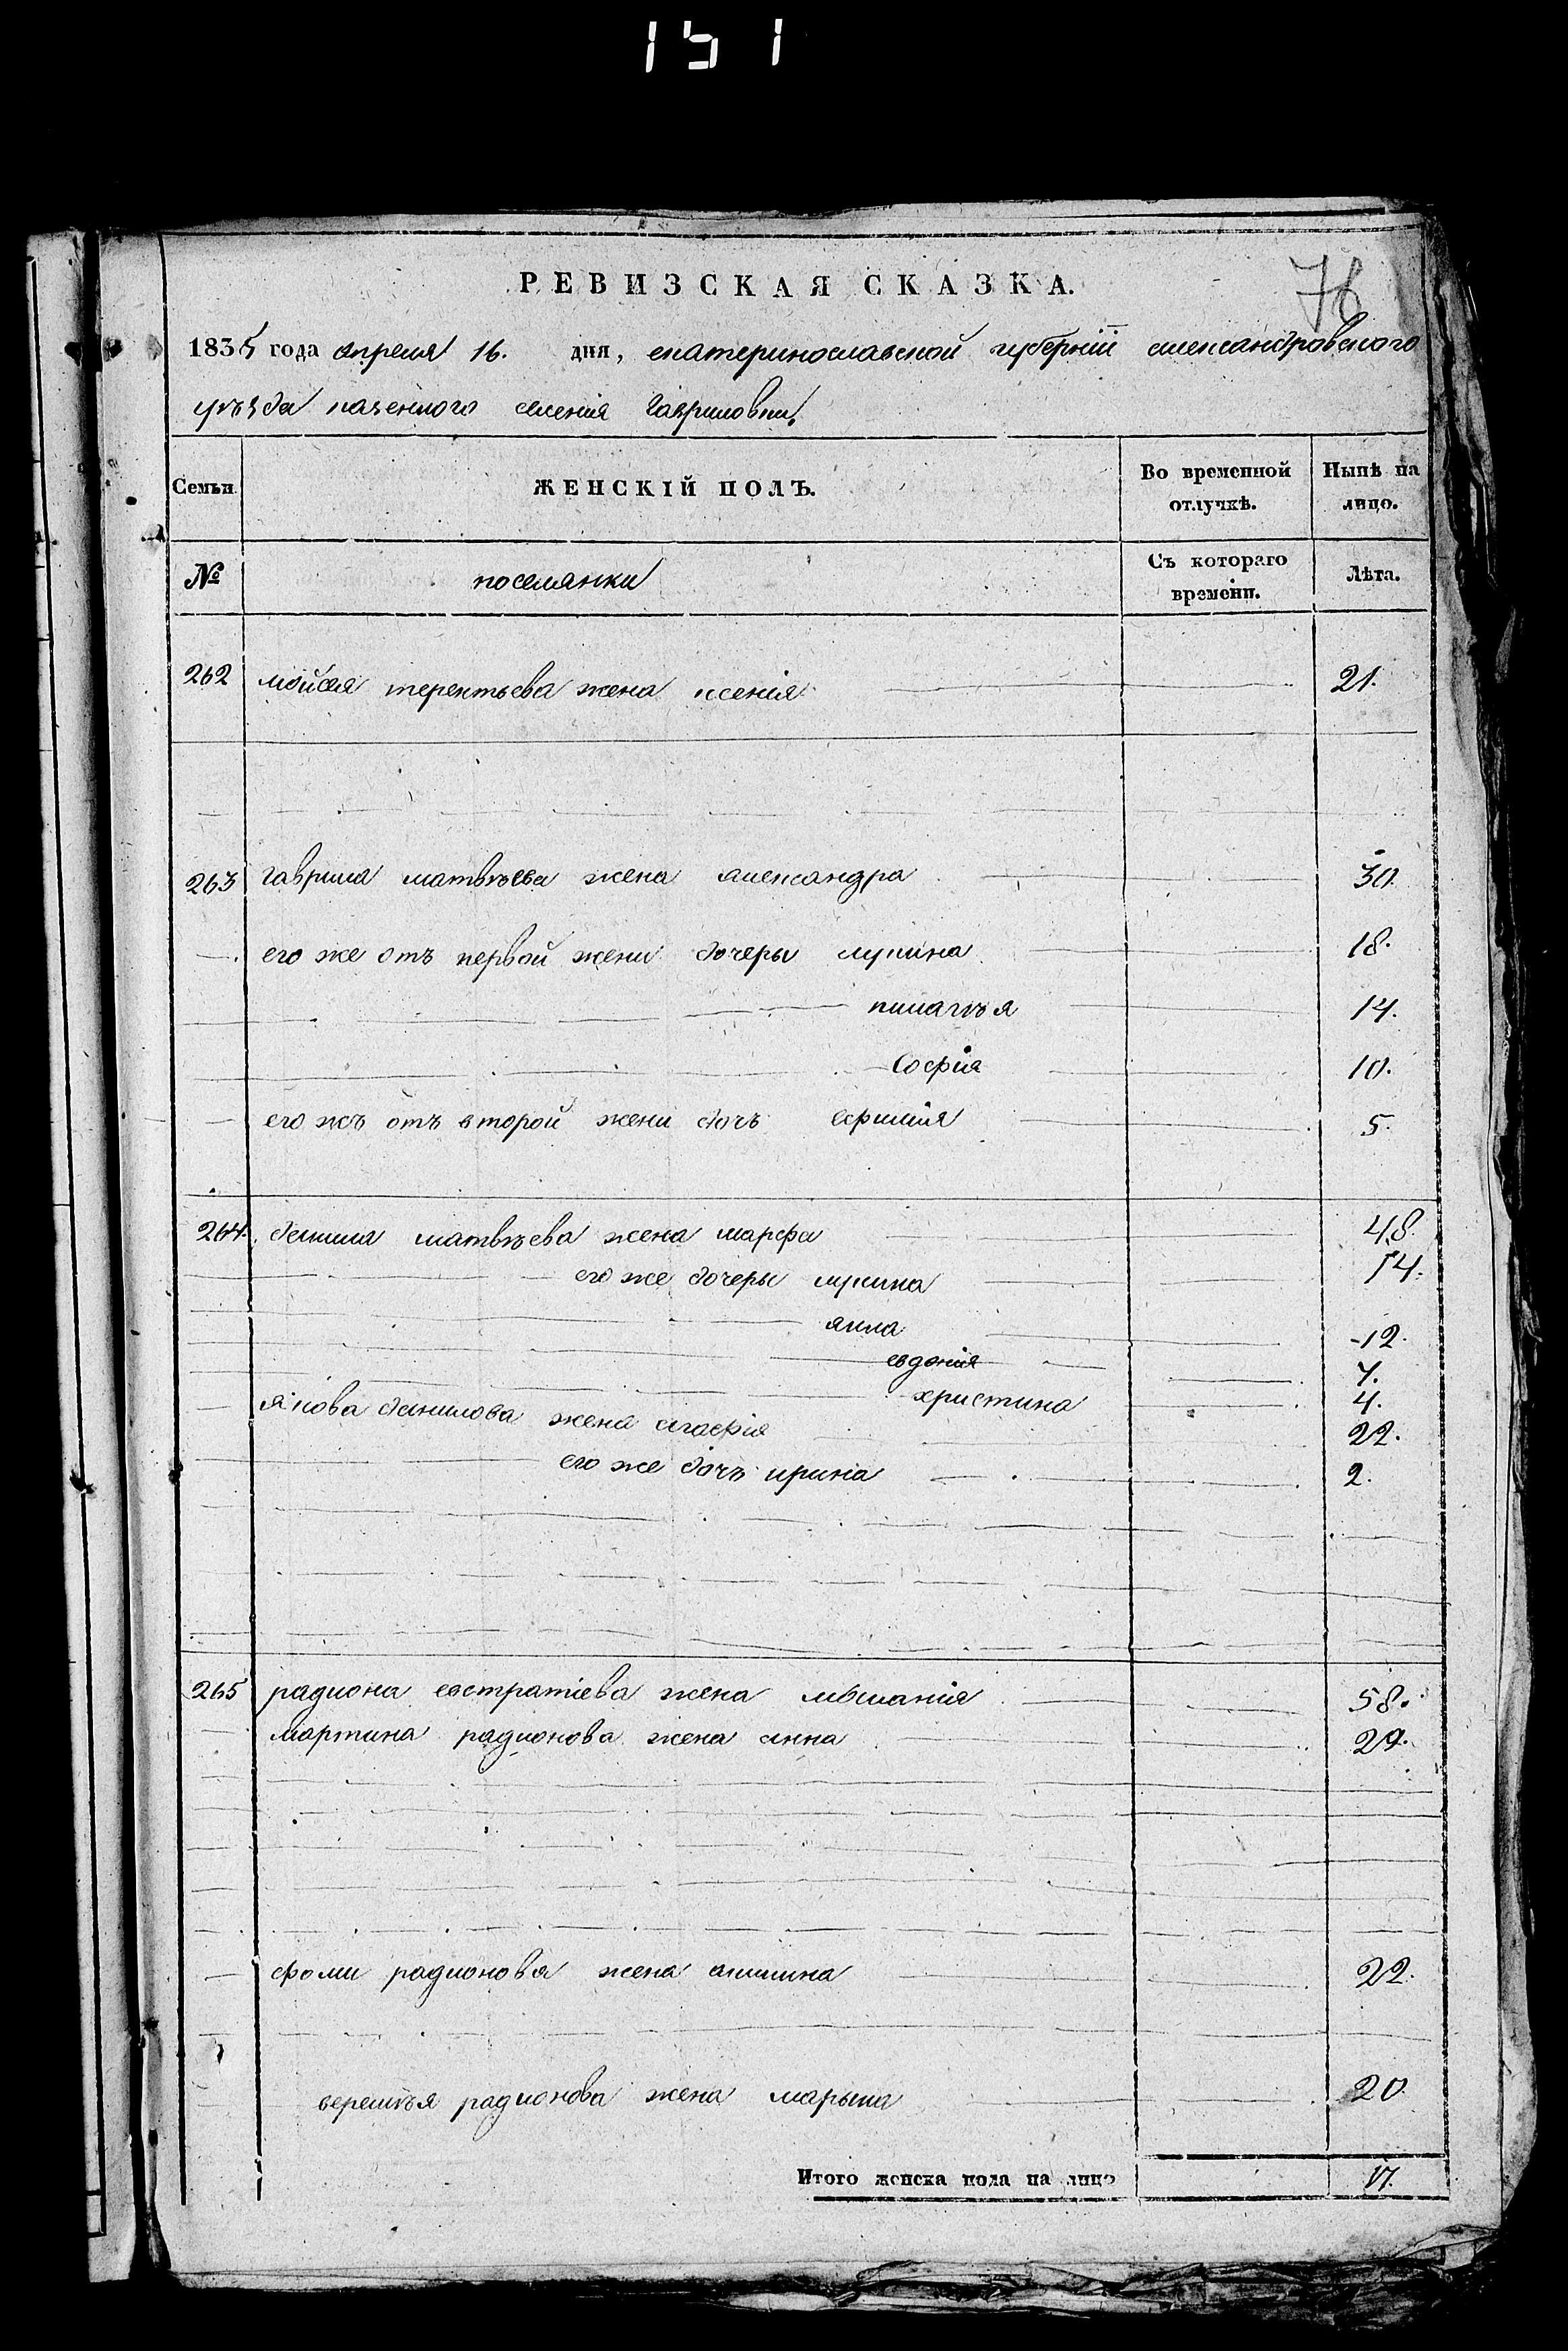 151
76
РЕВИЗСКАЯ СКАЗКА.
1835 года апреля 16. дня, екатеринославской губернїй александровского
уѣзда казенного селенія Гавриловки.
Семьи. ЖЕНСКІЙ ПОЛЪ. Во временной отлучкѣ. Нынѣ на лицо.
№ поселянки Съ котораго времени. Лѣта.
262 мойсея терентьева жена ксенія 21.
263 гаврила матвѣева жена александра 30.
его же отъ первой жени дочеры лукина 18.
пилагѣя 14.
Софія 10.
его жъ отъ второй жени дочъ ефимія 5.
264. данила матвѣева жена марфа 48.
его же дочеры лукина 14.
анна 12.
евдокія 7.
христина 4.
якова данилова жена агафія 22.
его же дочъ ирина 2.
265 радиона евстратіева жена мѣланія 58.
мартина радионова жена анна 29.
фоми радионова жена акилина 22.
веремѣя радионова жена марьша 20.
Итого женска пола на лицо 17.